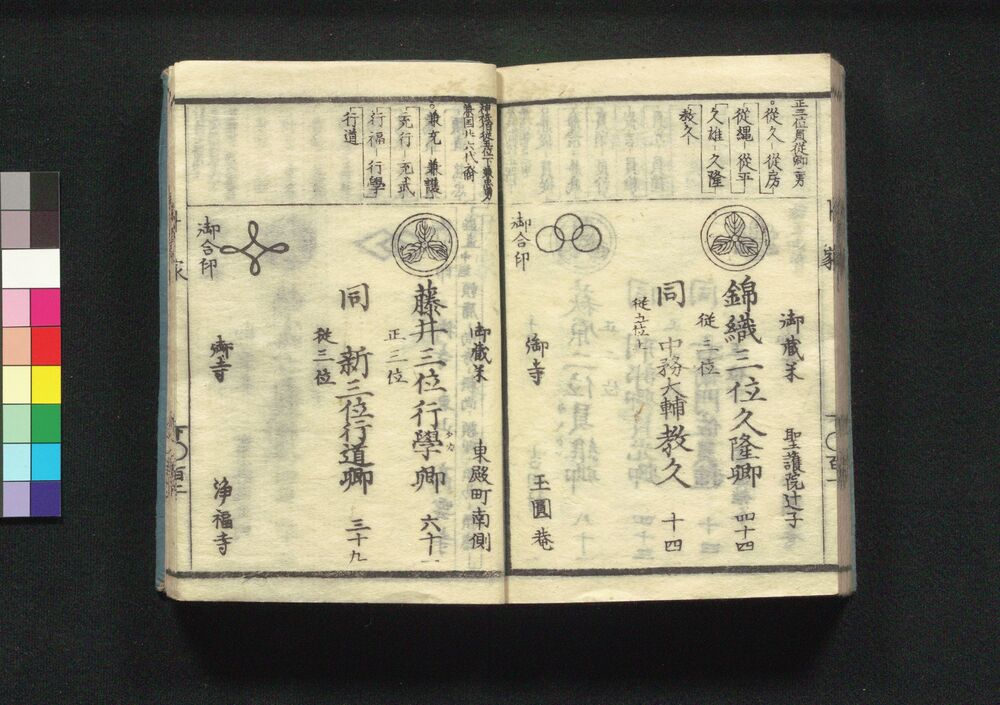 正三位員従卿二男
○従久－従房
従縄－従平
久雄－久隆
教久－
御蔵米　聖護院辻子
錦織三位久隆卿　四十四
従三位
同　中務大輔教久　十四
従五位上
御寺　玉圓菴
御合印
兼充－兼護
充行－充武
行福－行學
行道
御蔵米　東殿町南側
藤井三位行學卿　六十一
正三位
同　新三位行道卿　三十九
従三位
御寺　浄福寺
御合印